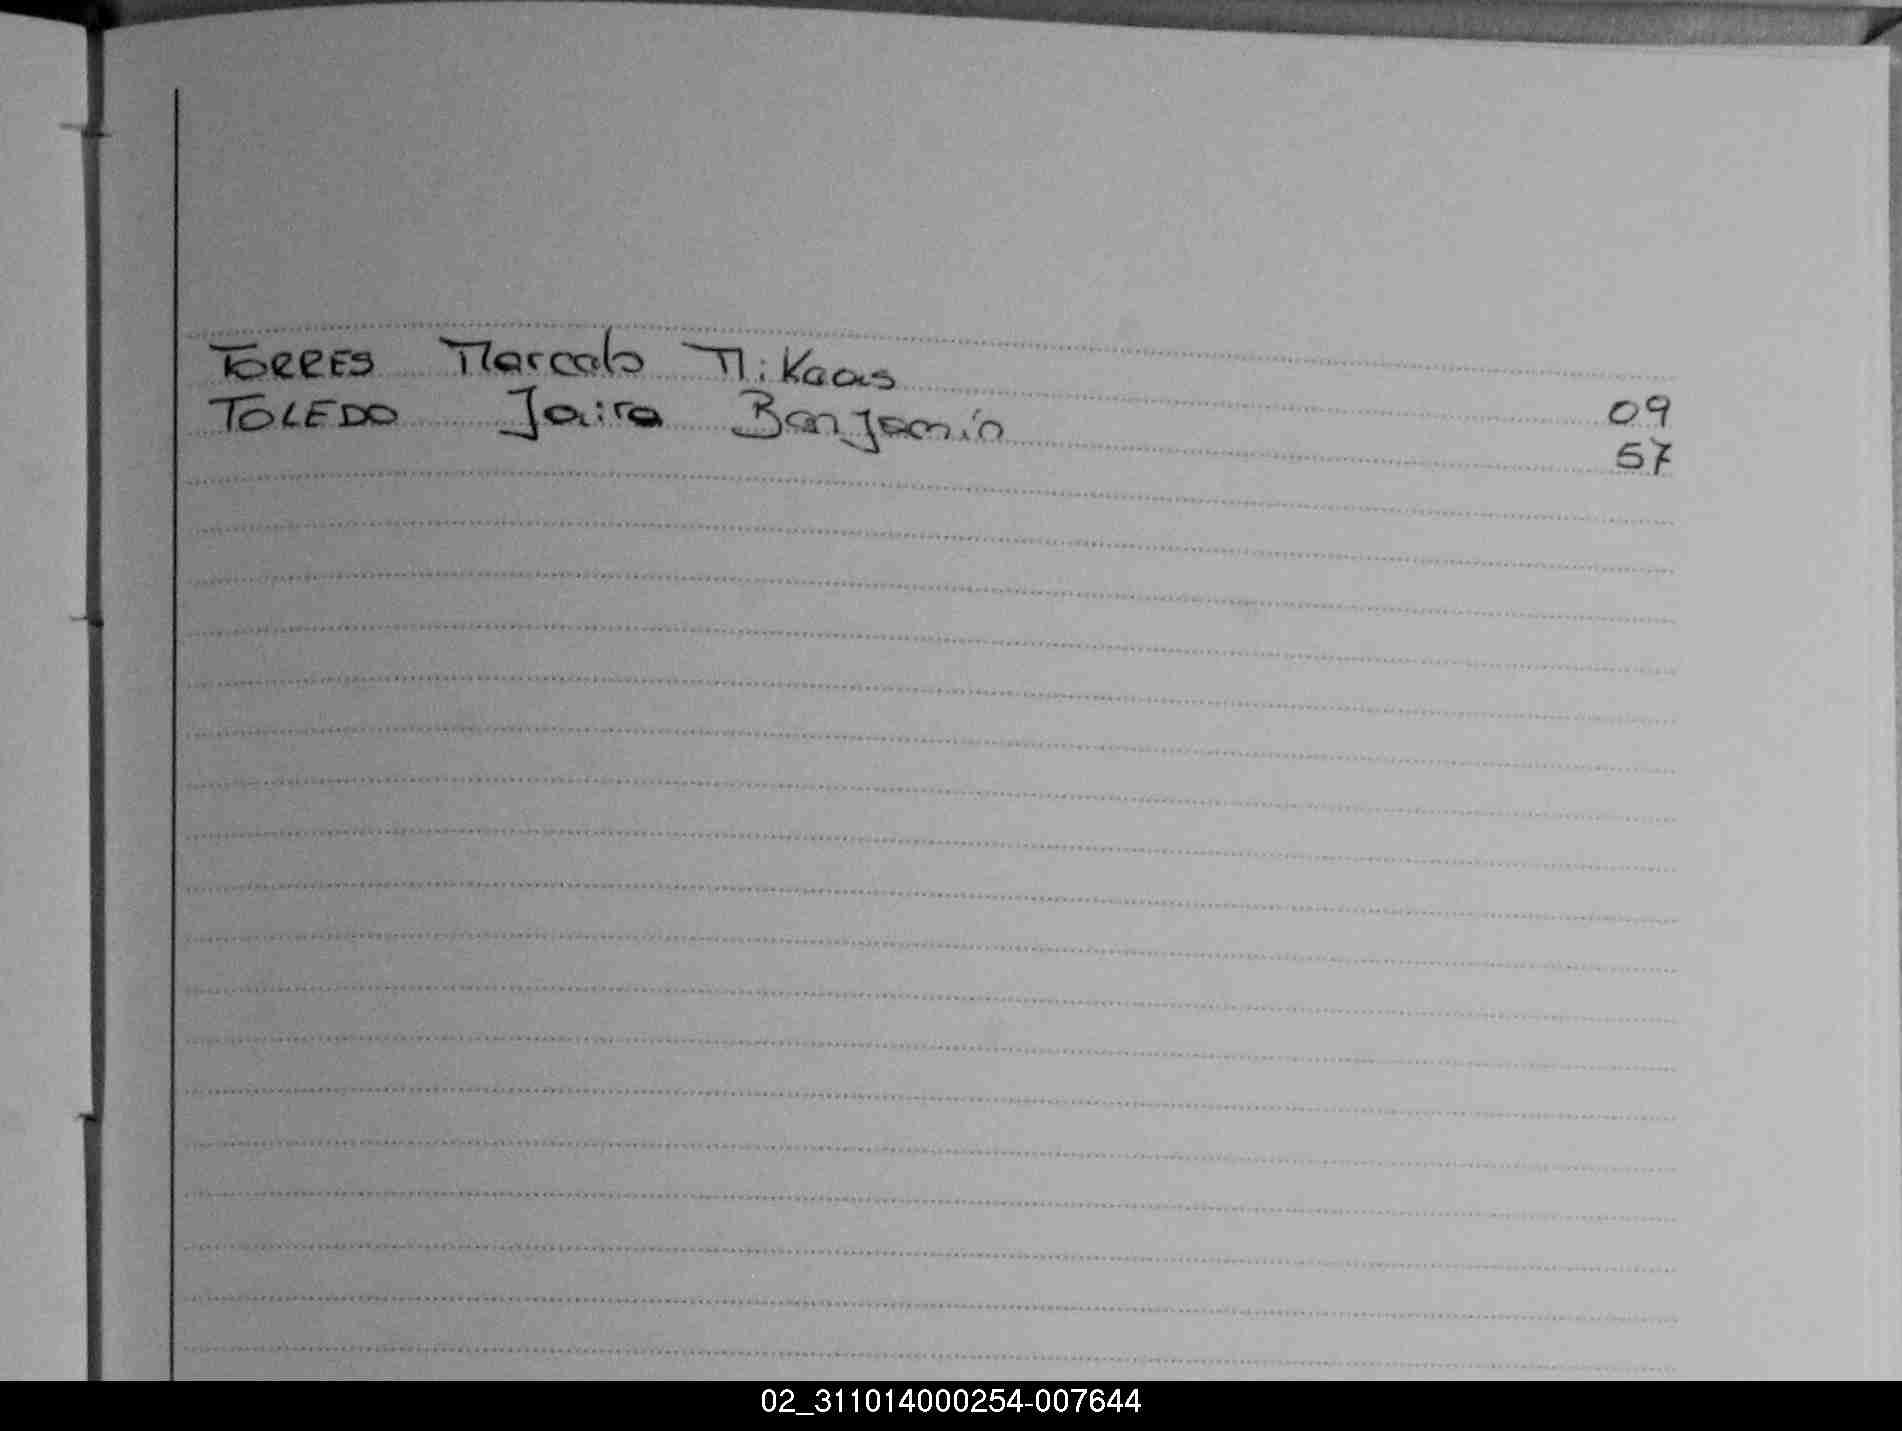 TORRES Marcelo Mikeas 09
TOLEDO Jairo Benjamín 57
02_311014000254-007644